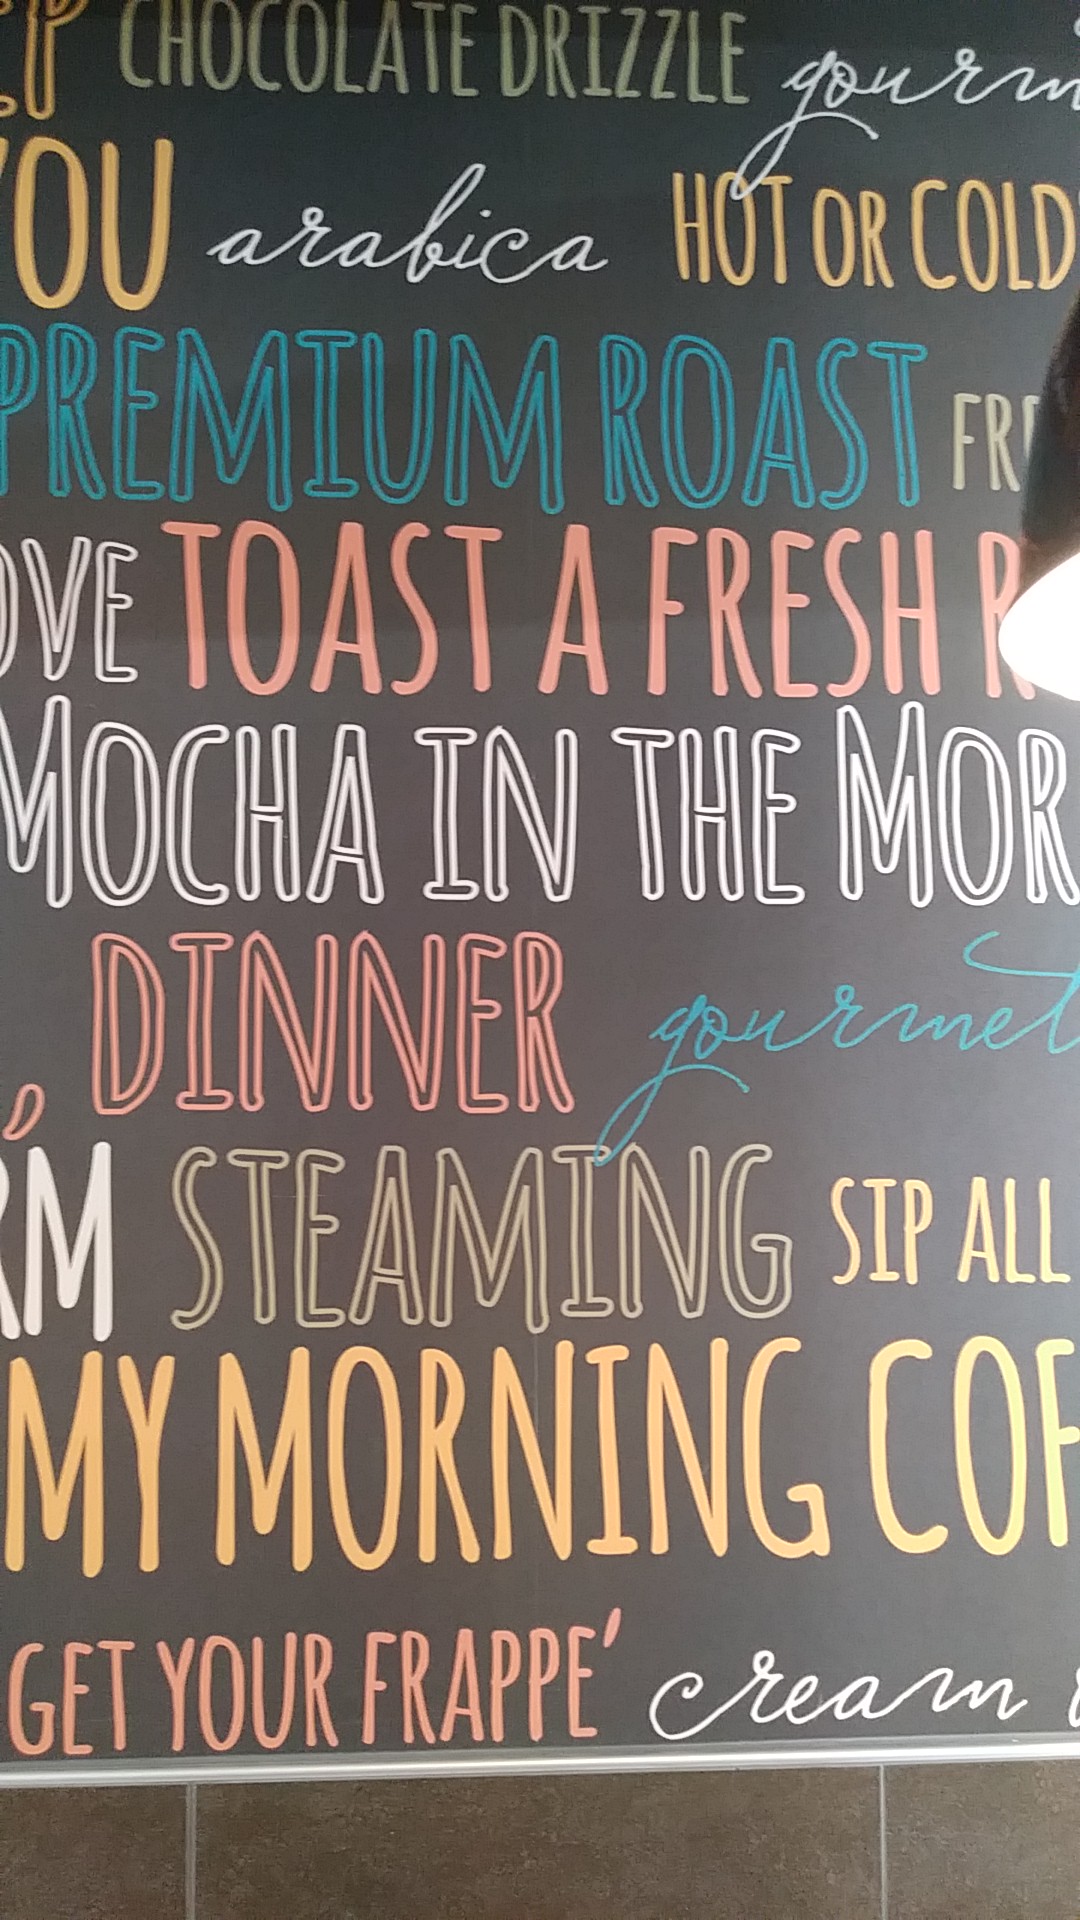 CHOCOLATE DRIZZLE gourm
YOU arabica HOT OR COLD
PREMIUM ROAST FRE
OVE TOAST A FRESH R
MOCHA IN THE MOR
, DINNER gourmet
RM STEAMING SIP ALL
MY MORNING COF
GET YOUR FRAPPE' cream